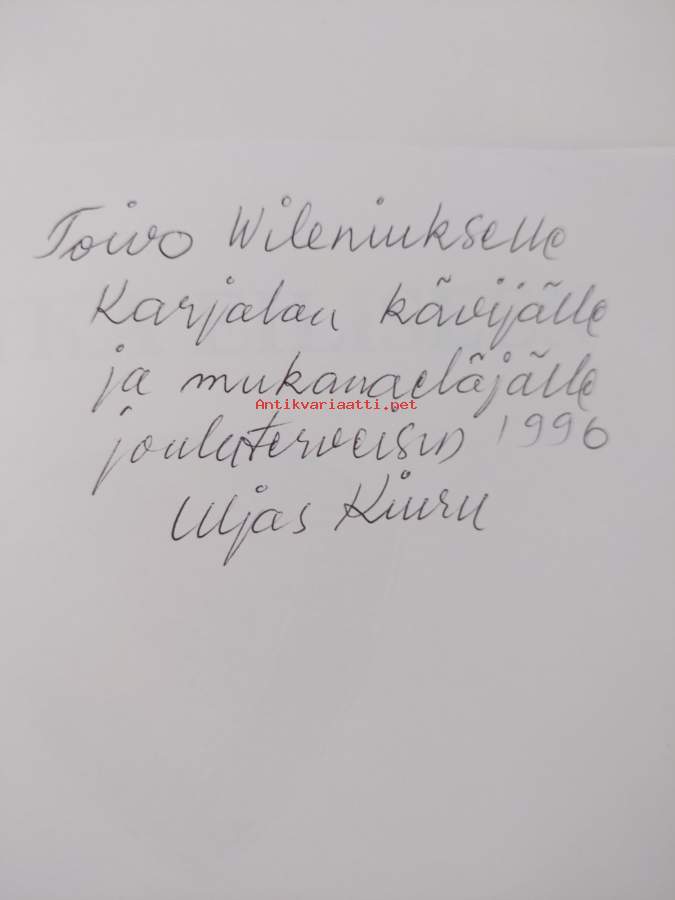 Toivo Wileniukselle
Karjalan kävijälle
ja mukanaeläjälle
Antikvariaatti.net
jouluterveisin 1996
Uljas Kiuru